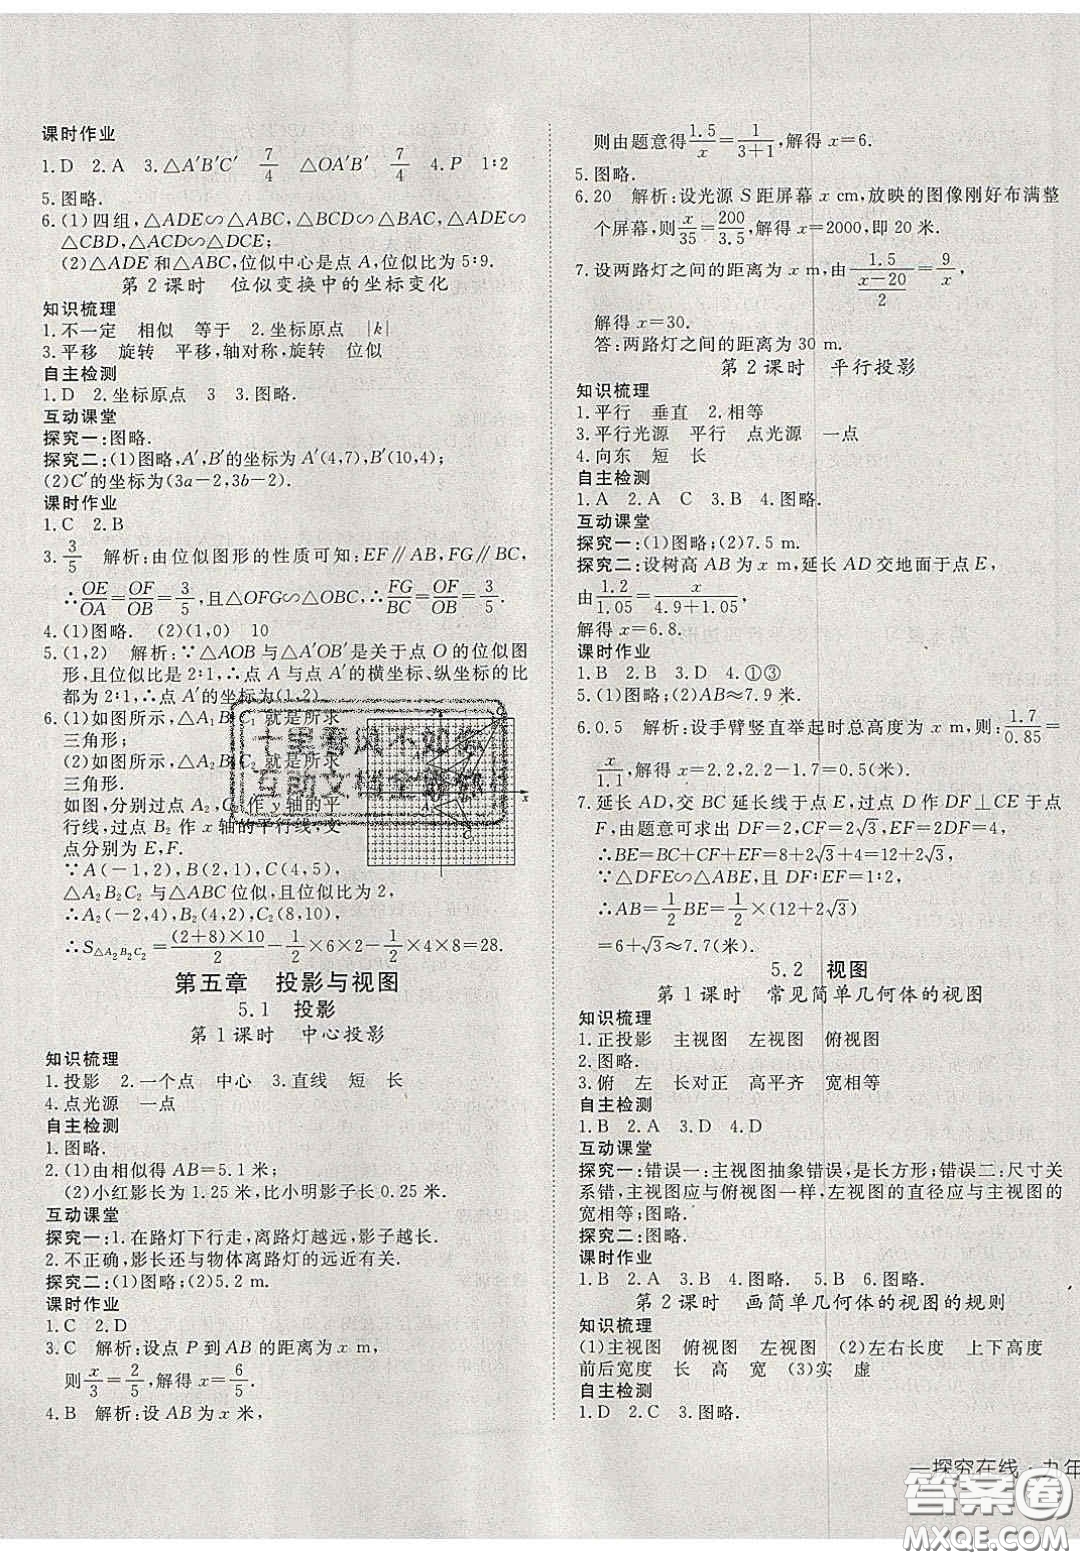 课时作业
1.D 2.A 3.△A′B′C′ 7/4 △OA′B′ 7/4 4.P 1∶2
5.图略.
6.(1)四组,△ADE∽△ABC,△BCD∽△BAC,△ADE∽
△CBD,△ACD∽△DCE;
(2)△ADE和△ABC,位似中心是点A,位似比为5∶9.
第2课时 位似变换中的坐标变化
知识梳理
1.不一定 相似 等于 2.坐标原点 |k|
3.平移 旋转 平移,轴对称,旋转 位似
自主检测
1.D 2.坐标原点 3.图略.
互动课堂
探究一:图略.
探究二:(1)图略,A′,B′的坐标分别为A′(4,7),B′(10,4);
(2)C′的坐标为(3a-2,3b-2).
课时作业
1.C 2.B
3.3/5 解析:由位似图形的性质可知:EF∥AB,FG∥BC,
∴OE/OA=OF/OB=3/5,且△OFG∽△OBC,∴FG/BC=OF/OB=3/5.
4.(1)图略. (2)(1,0) 10
5.(1,2) 解析:∵△AOB与△A′OB′是关于点O的位似图
形,且位似比是2∶1,∴点A与点A′的横坐标、纵坐标的比
都为2∶1,∴点A′的坐标为(1,2).
6.(1)如图所示,△A₁B₁C₁就是所求
三角形;
(2)如图所示,△A₂B₂C₂就是所求
三角形.
如图,分别过点A₂,C₂作y轴的平
行线,过点B₂作x轴的平行线,交
点分别为E,F.
∵A(-1,2),B(2,1),C(4,5),
△A₂B₂C₂与△ABC位似,且位似比为2,
∴A₂(-2,4),B₂(4,2),C₂(8,10),
∴S△A₂B₂C₂=(2+8)×10/2-1/2×6×2-1/2×4×8=28.
第五章 投影与视图
5.1 投影
第1课时 中心投影
知识梳理
1.投影 2.一个点 中心 3.直线 短 长
4.点光源 一点
自主检测
1.图略.
2.(1)由相似得AB=5.1米;
(2)小红影长为1.25米,比小明影子长0.25米.
互动课堂
探究一:1.在路灯下行走,离路灯越远,影子越长.
2.不正确,影长还与物体离路灯的远近有关.
探究二:(1)图略;(2)5.2 m.
课时作业
1.C 2.D
3.C 解析:设点P到AB的距离为x m,
则x/3=2/5,解得x=6/5.
4.B 解析:设AB为x米,
则由题意得1.5/x=1/(3+1),解得x=6.
5.图略.
6.20 解析:设光源S距屏幕x cm,放映的图像刚好布满整
个屏幕,则x/35=200/3.5,解得x=2000,即20米.
7.设两路灯之间的距离为x m,由1.5/((x-20)/2)=9/x,
解得x=30.
答:两路灯之间的距离为30 m.
第2课时 平行投影
知识梳理
1.平行 垂直 2.相等
3.平行光源 平行 点光源 一点
4.向东 短 长
自主检测
1.A 2.A C 3.B 4.图略.
互动课堂
探究一:(1)图略;(2)7.5 m.
探究二:设树高AB为x m,延长AD交地面于点E,
由1.2/1.05=x/(4.9+1.05),
解得x=6.8.
课时作业
1.B 2.B 3.D 4.①③
5.(1)图略;(2)AB≈7.9米.
6.0.5 解析:设手臂竖直举起时总高度为x m,则:1.7/0.85=
x/1.1,解得x=2.2,2.2-1.7=0.5(米).
7.延长AD,交BC延长线于点E,过点D作DF⊥CE于点
F,由题意可求出DF=2,CF=2√3,EF=2DF=4,
∴BE=BC+CF+EF=8+2√3+4=12+2√3.
∵△DFE∽△ABE,且DF∶EF=1∶2,
∴AB=1/2BE=1/2×(12+2√3)
=6+√3≈7.7(米).
5.2 视图
第1课时 常见简单几何体的视图
知识梳理
1.正投影 主视图 左视图 俯视图
2.图略.
3.俯 左 长对正 高平齐 宽相等
自主检测
1.B 2.A 3.D 4.D
互动课堂
探究一:错误一:主视图抽象错误,是长方形;错误二:尺寸关
系错,主视图应与俯视图一样,左视图的直径应与主视图的
宽相等;图略.
探究二:图略.
课时作业
1.B 2.A 3.B 4.图略. 5.B 6.图略.
第2课时 画简单几何体的视图的规则
知识梳理
(1)主视图 俯视图 左视图 (2)左右长度 上下高度
前后宽度 长 高 宽 (3)实 虚
自主检测
1.D 2.C 3.图略.
一探究在线·九年
答案圈
MXQE.COM